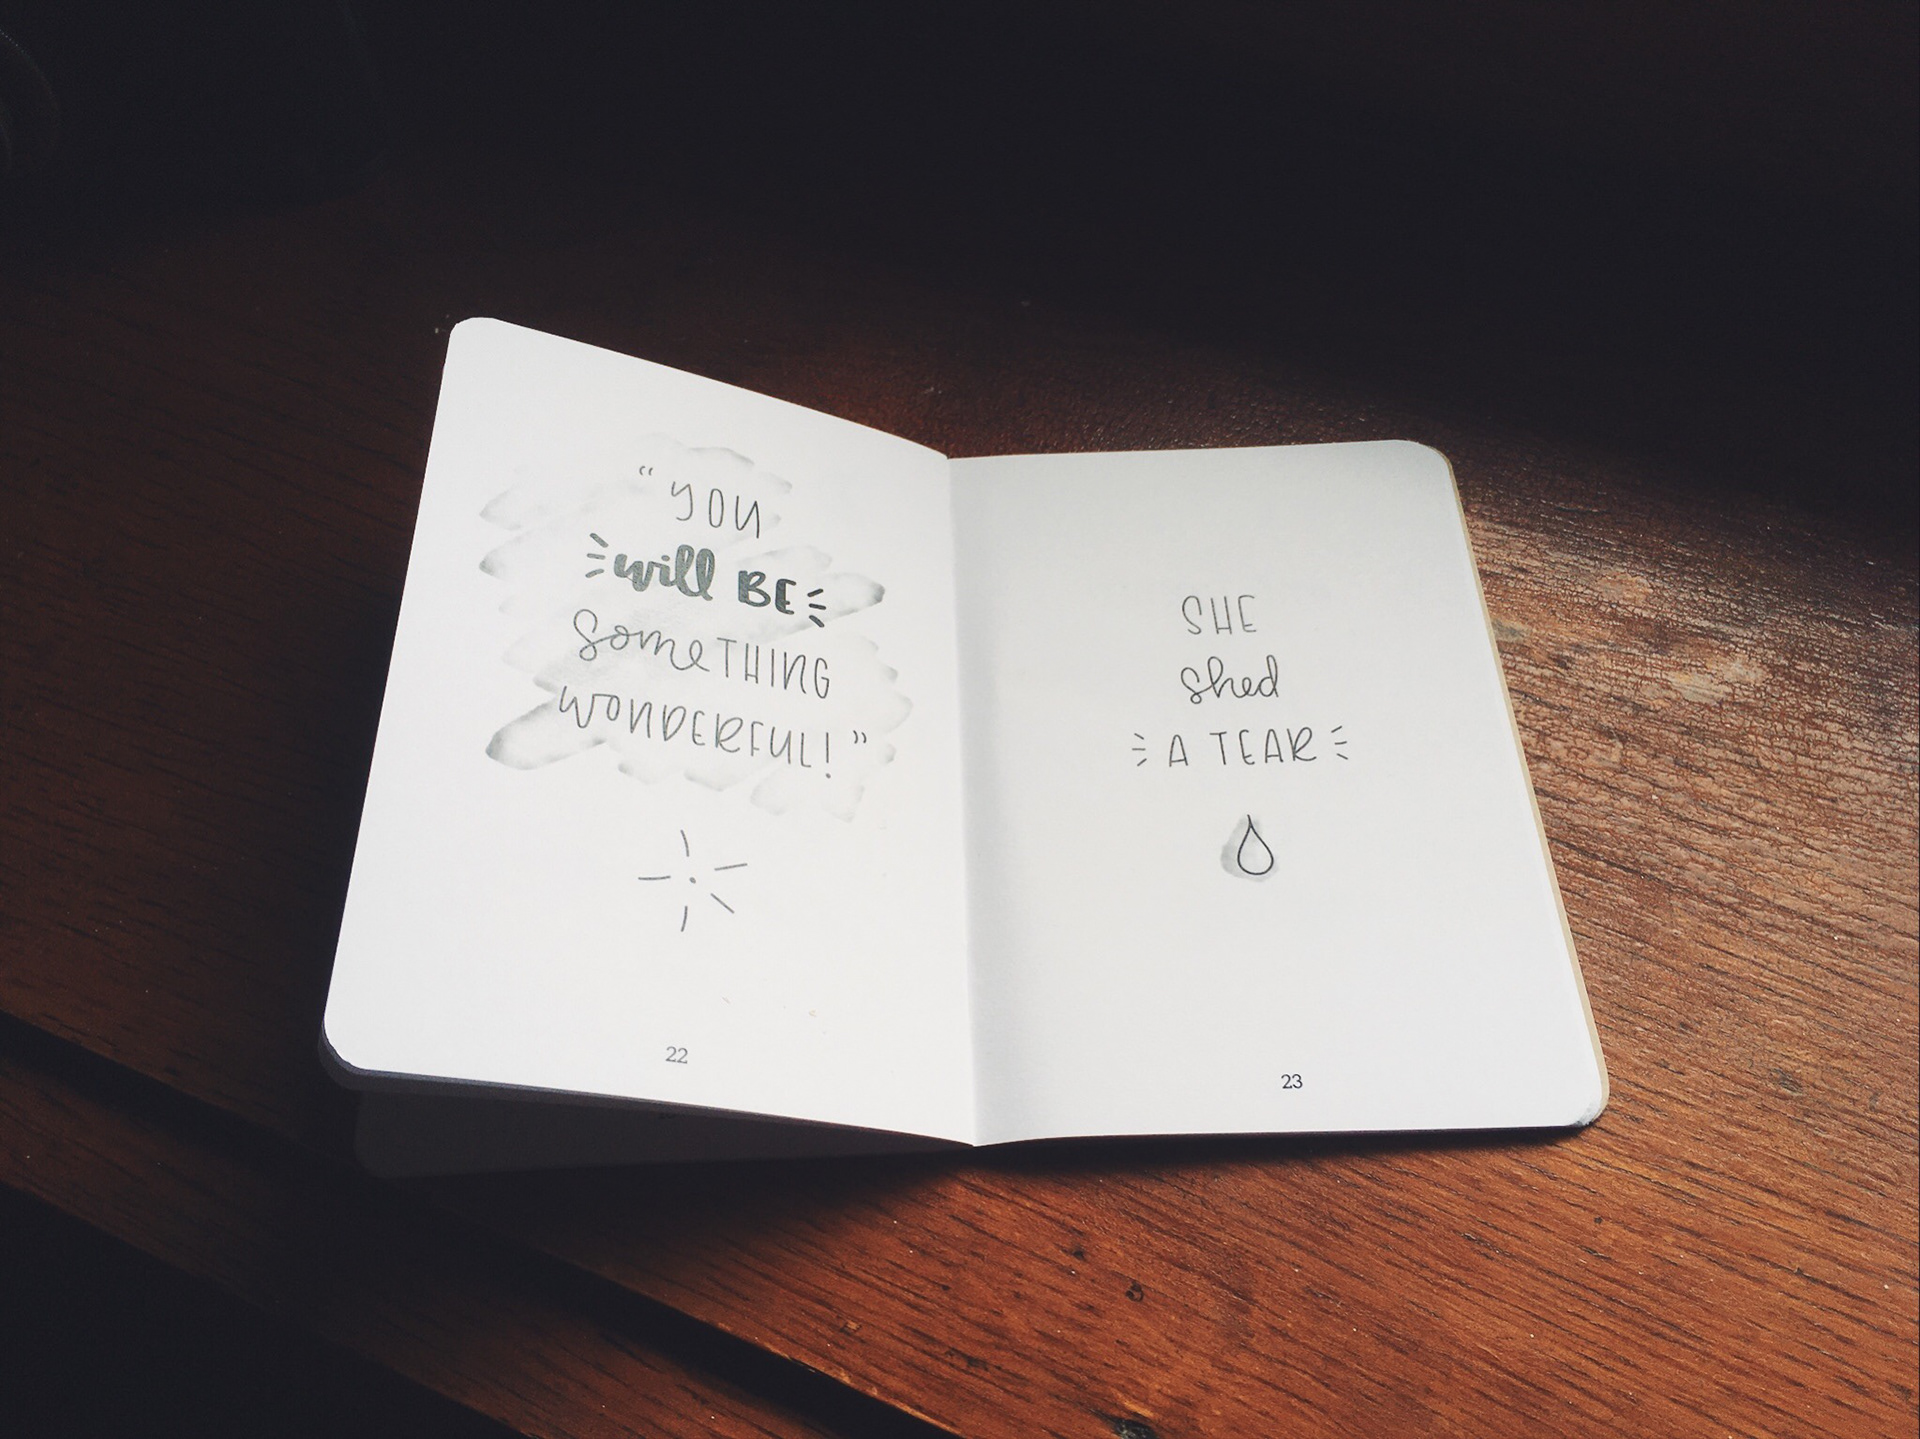 “YOU
will BE
someTHING
WONDERFUL!”
22
SHE
shed
A TEAR
23